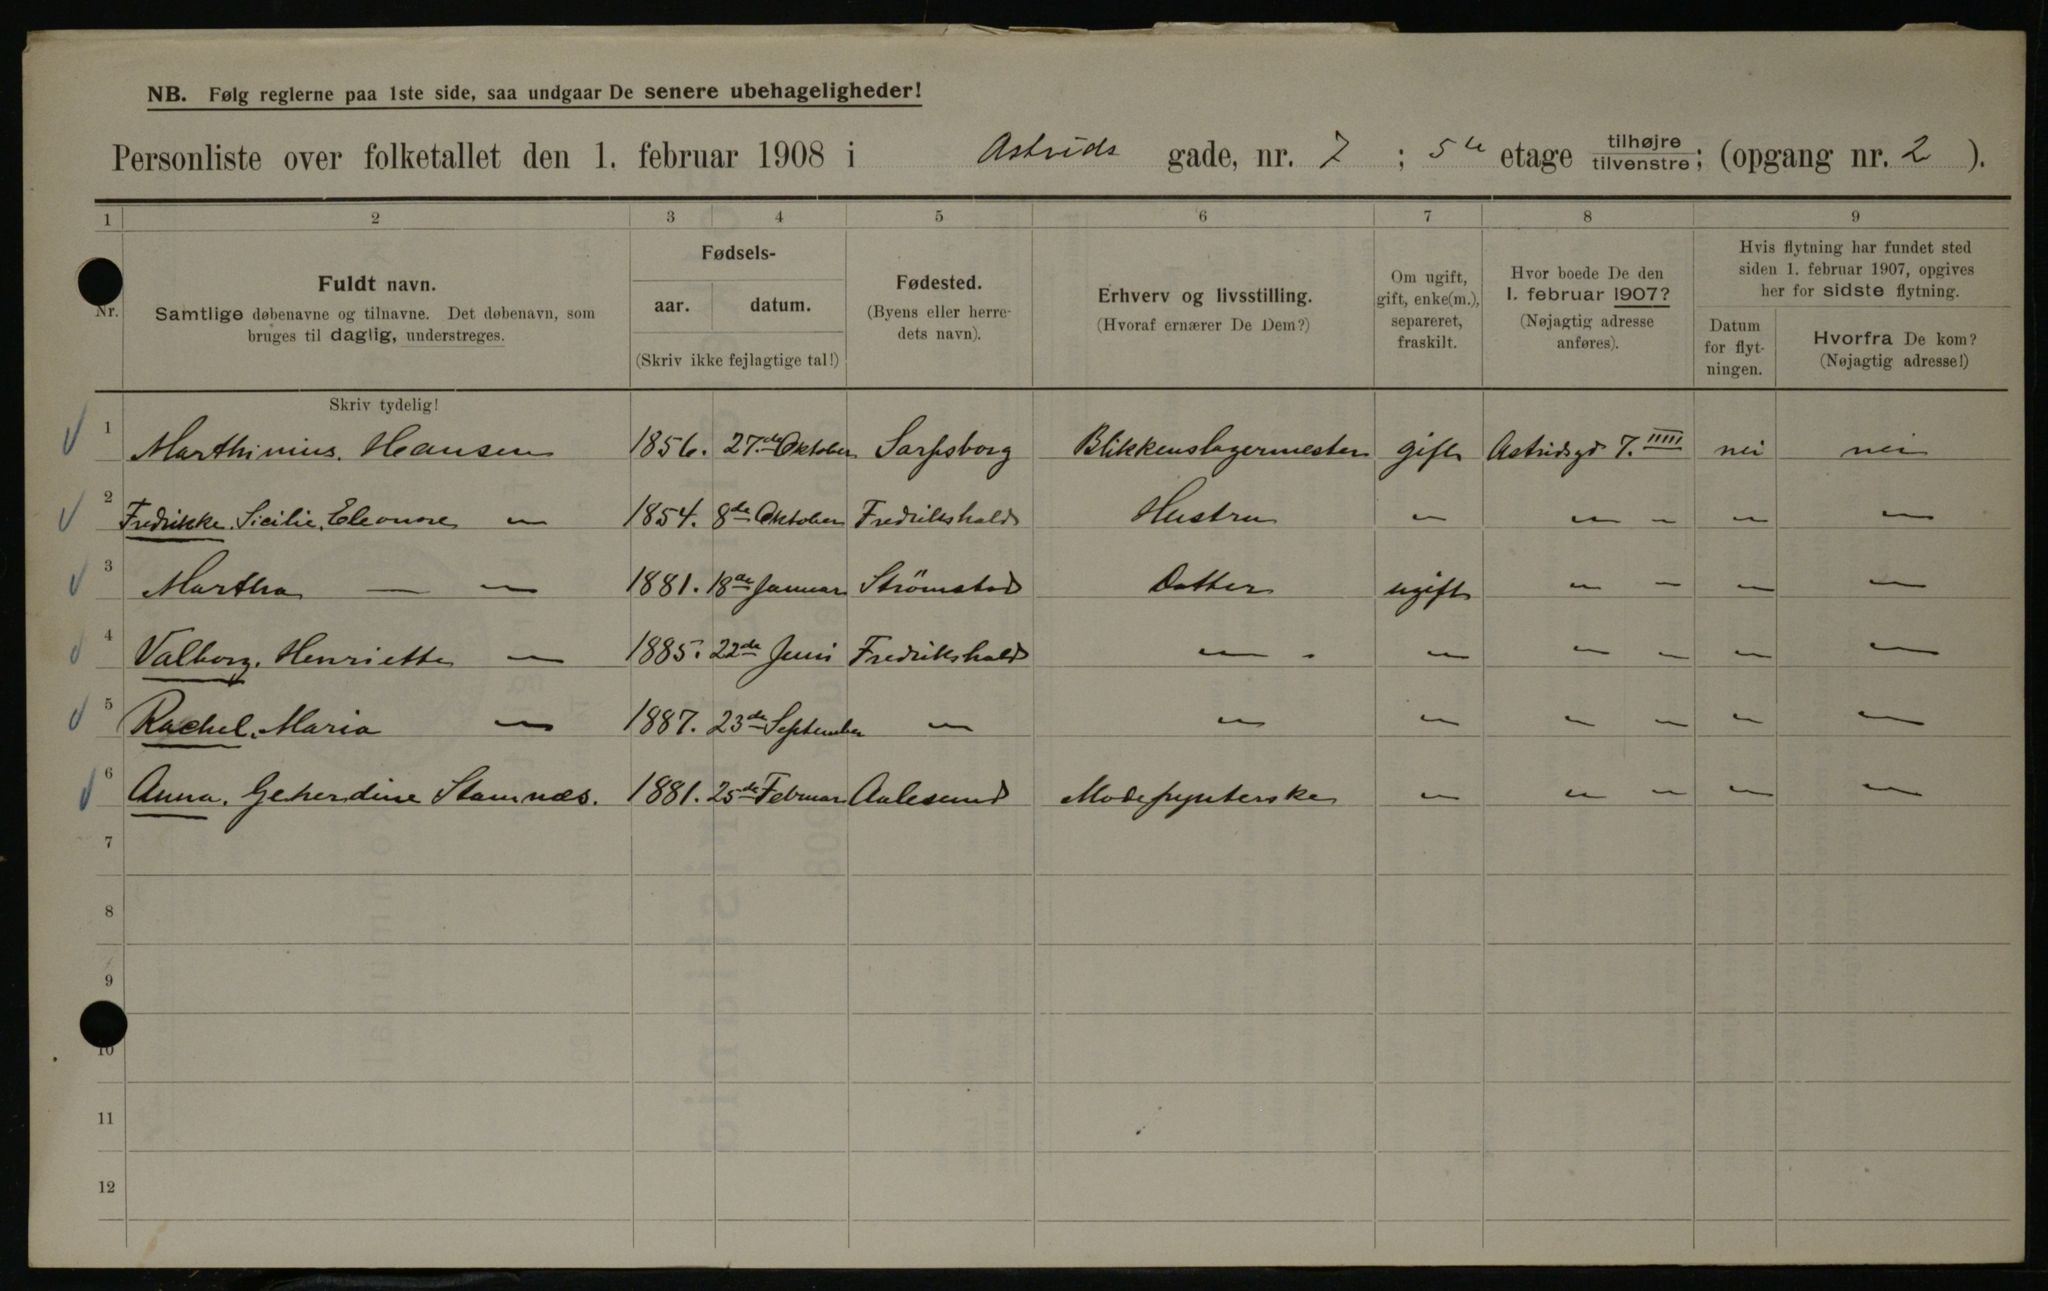 NB. Følg reglerne paa 1ste side, saa undgaar De senere ubehageligheder!
Personliste over folketallet den 1. februar 1908 i Astrids gade, nr. 7 ; 5te etage tilhøjre tilvenstre; (opgang nr. 2 ).
1 2 3 4 5 6 7 8 9
Nr.
Fuldt navn.
Samtlige døbenavne og tilnavne. Det døbenavn, som
bruges til daglig, understreges.
Fødsels-
aar. datum.
(Skriv ikke fejlagtige tal!)
Fødested.
(Byens eller herre-
dets navn).
Erhverv og livsstilling.
(Hvoraf ernærer De Dem?)
Om ugift,
gift, enke(m.),
separeret,
fraskilt.
Hvor boede De den
1. februar 1907?
(Nøjagtig adresse
anføres).
Hvis flytning har fundet sted
siden 1. februar 1907, opgives
her for sidste flytning.
Datum
for flyt-
ningen.
Hvorfra De kom?
(Nøjagtig adresse!)
Skriv tydelig!
1 Marthinius. Hansen 1856. 27.de Oktober Sarpsborg Blikkenslagermester gift Astridsgd 7. IIIII nei nei
2 Fredrikke. Sicilie, Eleonore — 1854. 8de Oktober Fredrikshald Hustru — — — — —
3 Martha — — 1881. 18de Januar Strömstad Datter ugift — — — —
4 Valborg. Henriette — 1885. 22de Juni Fredrikshald — — — — — —
5 Rachel. Maria — 1887. 23de September — — — — — — —
6 Anna. Geherdine Stamnæs. 1881. 25de Februar Aalesund Modepynterske — — — — —
7
8
9
10
11
12